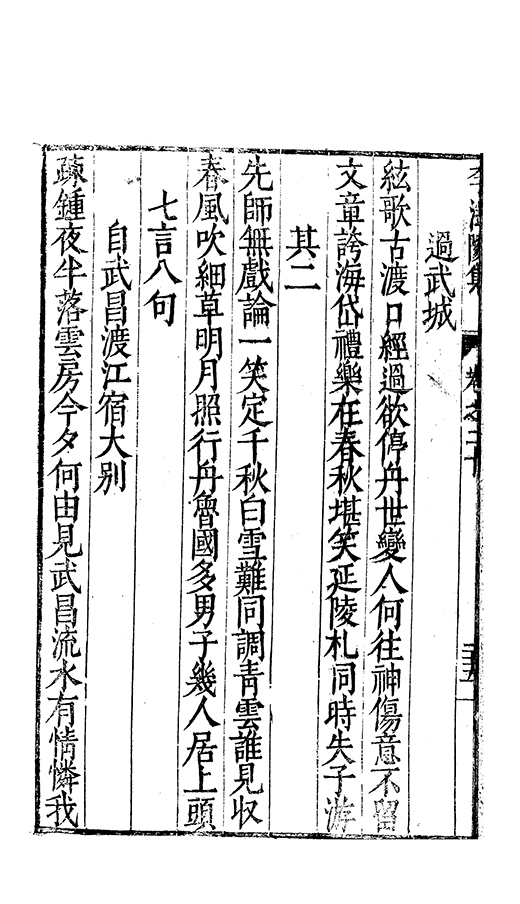 過武城
絃歌古渡口經過欲停丹世變人何往神傷意不留
文章誇海岱禮樂在春秋堪笑延陵札同時失子游
其二
先師無戲論一笑定千秋白雪難同調靑雲誰見收
春風吹細草明月照行丹魯國多男子幾人居上頭
七言八句
自武昌渡江宿大别
疎鍾夜半落雲房今夕何由見武昌流水有情憐我